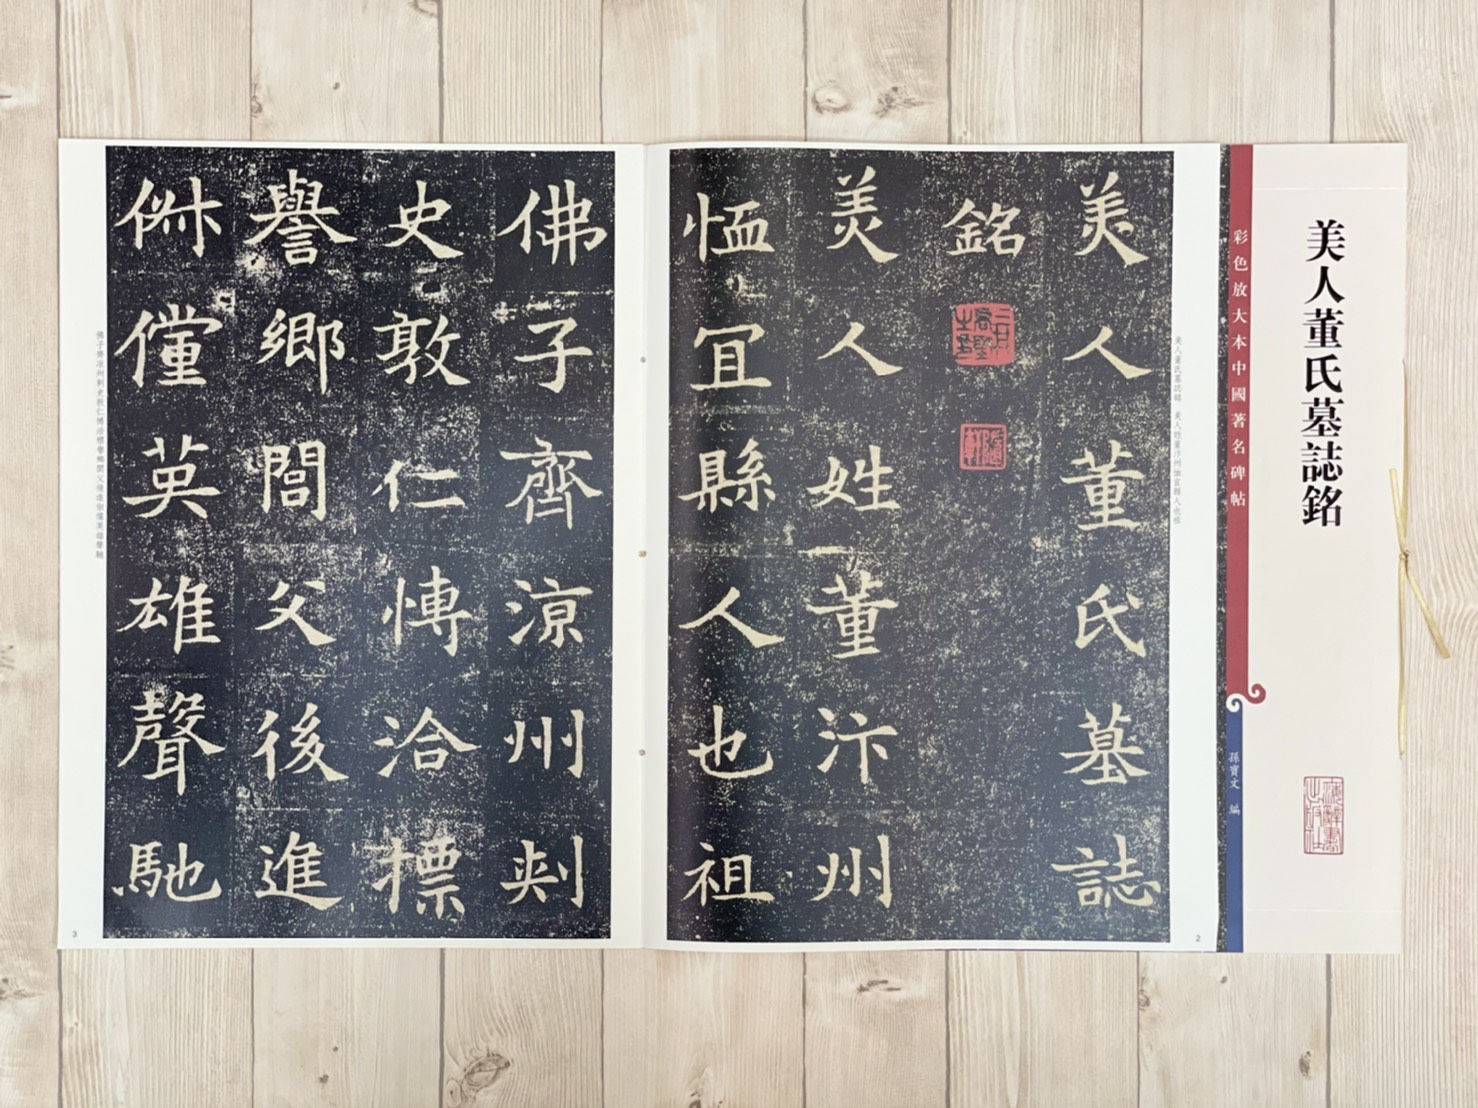 美人董氏墓誌銘
彩色放大本中國著名碑帖
孫寶文 編
美人董氏墓誌銘 美人姓董汴州恤宜縣人也祖
美人董氏墓誌
銘
美人姓董汴州
恤冝縣人也祖
2
佛子齊涼州刺
史敦仁愽洽標
譽鄉閭父後進
俶儻英雄聲馳
佛子齊涼州刺史敦仁博洽標譽鄉閭父後進俶儻英雄聲馳
3